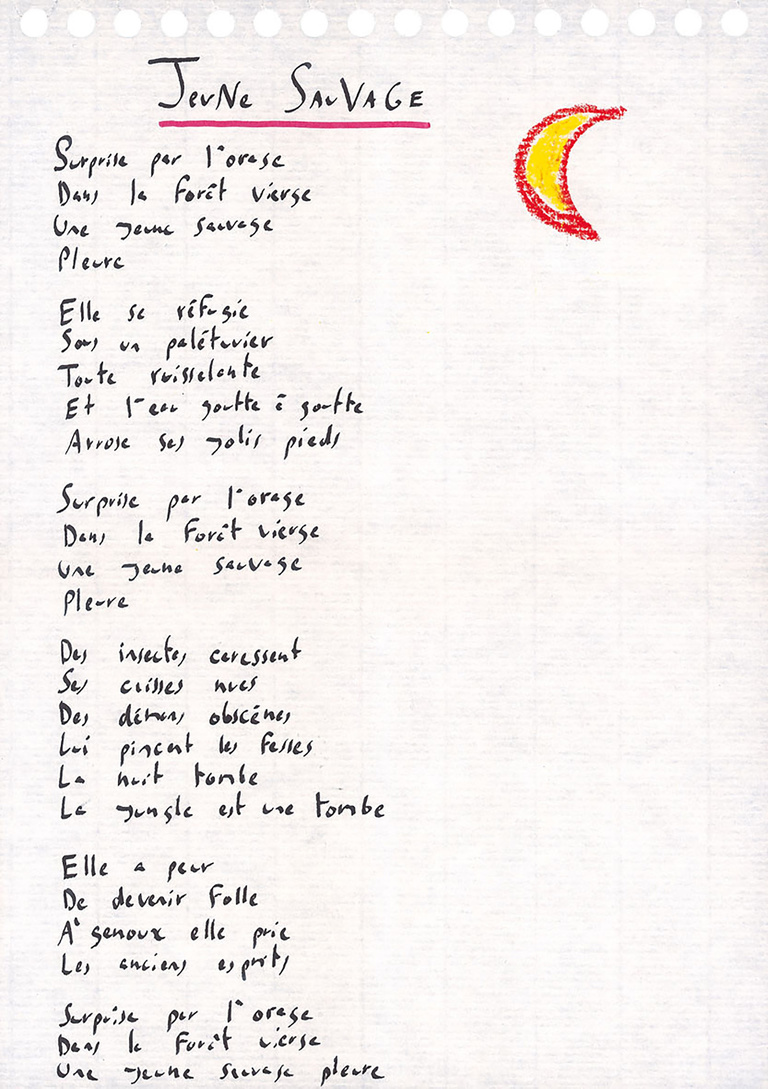 Jeune Sauvage
Surprise par l'orage
Dans la forêt vierge
Une jeune sauvage
Pleure
Elle se réfugie
Sous un palétuvier
Toute ruisselante
Et l'eau goutte à goutte
Arrose ses jolis pieds
Surprise par l'orage
Dans la forêt vierge
Une jeune sauvage
Pleure
Des insectes caressent
Ses cuisses nues
Des démons obscènes
Lui pincent les fesses
La nuit tombe
La jungle est une tombe
Elle a peur
De devenir folle
A genoux elle prie
Les anciens esprits
Surprise par l'orage
Dans la forêt vierge
Une jeune sauvage pleure